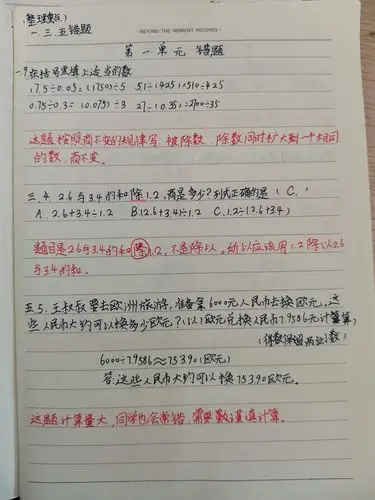 (整理重点)
一.三.五错题
· BEYOND THE MOMENT RECORDS ·
第一单元 错题
一.9.在括号里填上适当的数
17.5÷0.05=(1750)÷5 51÷(42.5)=510÷425
0.75÷0.3=(0.075)÷3 27÷(0.35)=2700÷35
这题按照商不变的规律写:被除数、除数同时扩大到一个相同
的数,商不变。
三.4. 2.6与3.4的和除1.2,商是多少?列式正确的是( C. )
A. 2.6+3.4÷1.2 B.(2.6+3.4)÷1.2 C.1.2÷(2.6+3.4)
题目是2.6与3.4的和除1.2,不是除以。所以应该用1.2除以2.6
与3.4的和。
五.5. 王叔叔要去欧洲旅游,准备拿6000元人民币去换欧元,这
些人民币大约可以换多少欧元?(以1欧元兑换人民币7.9586元计算)
(得数保留两位小数)
6000÷7.9586≈753.90(欧元)
答:这些人民币大约可以换753.90欧元。
这题计算量大,同学也会常错,需要认真计算。